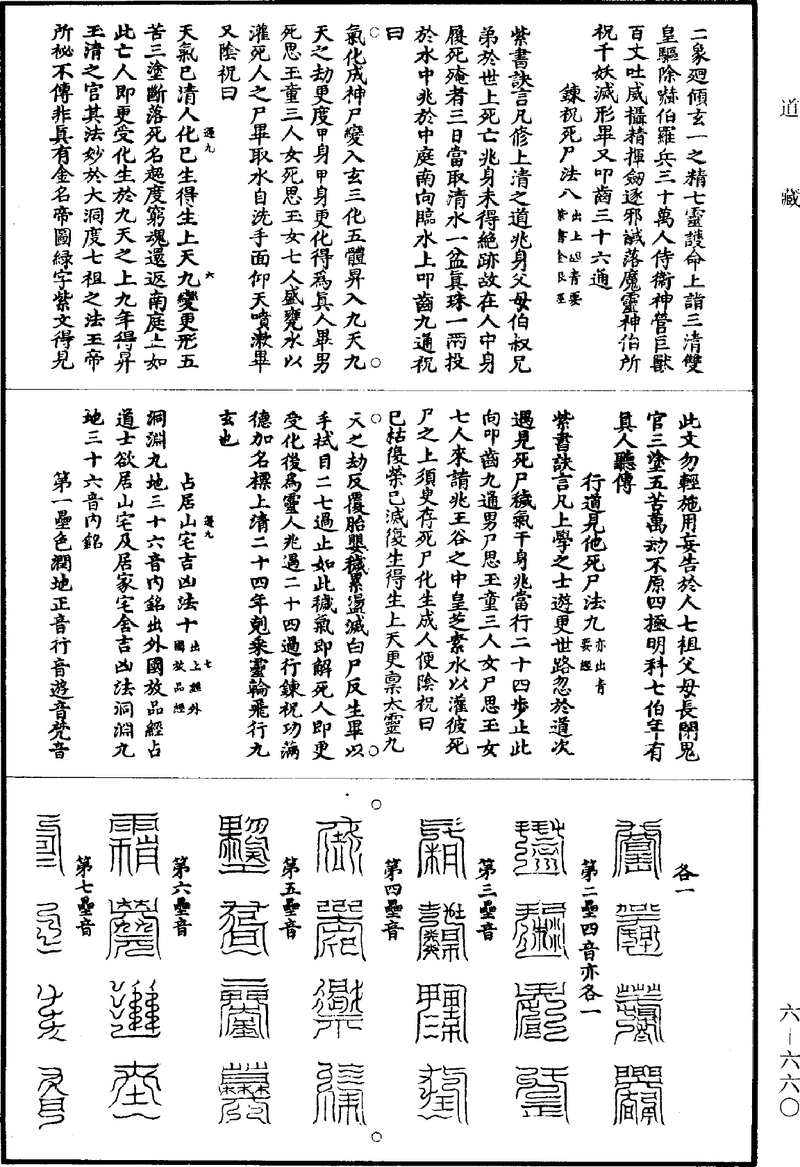 道藏
二象廻傾玄一之精七靈護命上詣三清雙
皇驅除赫伯羅兵三十萬人侍衞神管巨獸
百丈吐威攝精揮劒逐邪馘落魔靈神伯所
祝千妖滅形畢又叩齒三十六通
鍊祝死尸法八
紫書訣言凡修上清之道兆身父母伯叔兄
弟於世上死亡兆身未得絕跡故在人中身
履死殗者三日當取清水一盆真珠一兩投
於水中兆於中庭南向臨水上叩齒九通祝
曰
氣化成神尸變入玄三化五體昇入九天九
天之劫更度甲身甲身更化得為真人畢男
死思玉童三人女死思玉女七人盛甕水以
灌死人之尸畢取水自洗手面仰天噴漱畢
又陰祝曰
天氣已清人化已生得生上天九變更形五
苦三塗斷落死名超度窮魂還返南庭上如
此亡人即更受化生於九天之上九年得昇
玉清之官其法妙於大洞度七祖之法玉帝
所祕不傳非真有金名帝圖綠字紫文得見
此文勿輕施用妄告於人七祖父母長閉鬼
官三塗五苦萬劫不原四極明科七伯年有
真人聽傳
行道見他死尸法九亦出青要經
紫書訣言凡上學之士遊更世路忽於道次
遇見死尸穢氣干身兆當行二十四步止此
向叩齒九通男尸思玉童三人女尸思玉女
七人來請兆玉谷之中皇芝素水以灌彼死
尸之上須臾存死尸化生成人便陰祝曰
已枯復榮已滅復生得生上天更稟太靈九
天之劫反覆胎嬰穢累盪滅白尸反生畢以
手拭目二七過止如此穢氣即解死人即更
受化後為靈人兆過二十四過行鍊祝功滿
德加名標上清二十四年剋乘靈輪飛行九
玄也
占居山宅吉凶法十出上經外國放品經
洞淵九地三十六音內銘出外國放品經占
道士欲居山宅及居家宅舍吉凶法洞淵九
地三十六音內銘
第一壘色潤地正音行音遊音梵音
各一
第二壘四音亦各一
第三壘音
第四壘音
第五壘音
第六壘音
第七壘音
六—六六〇